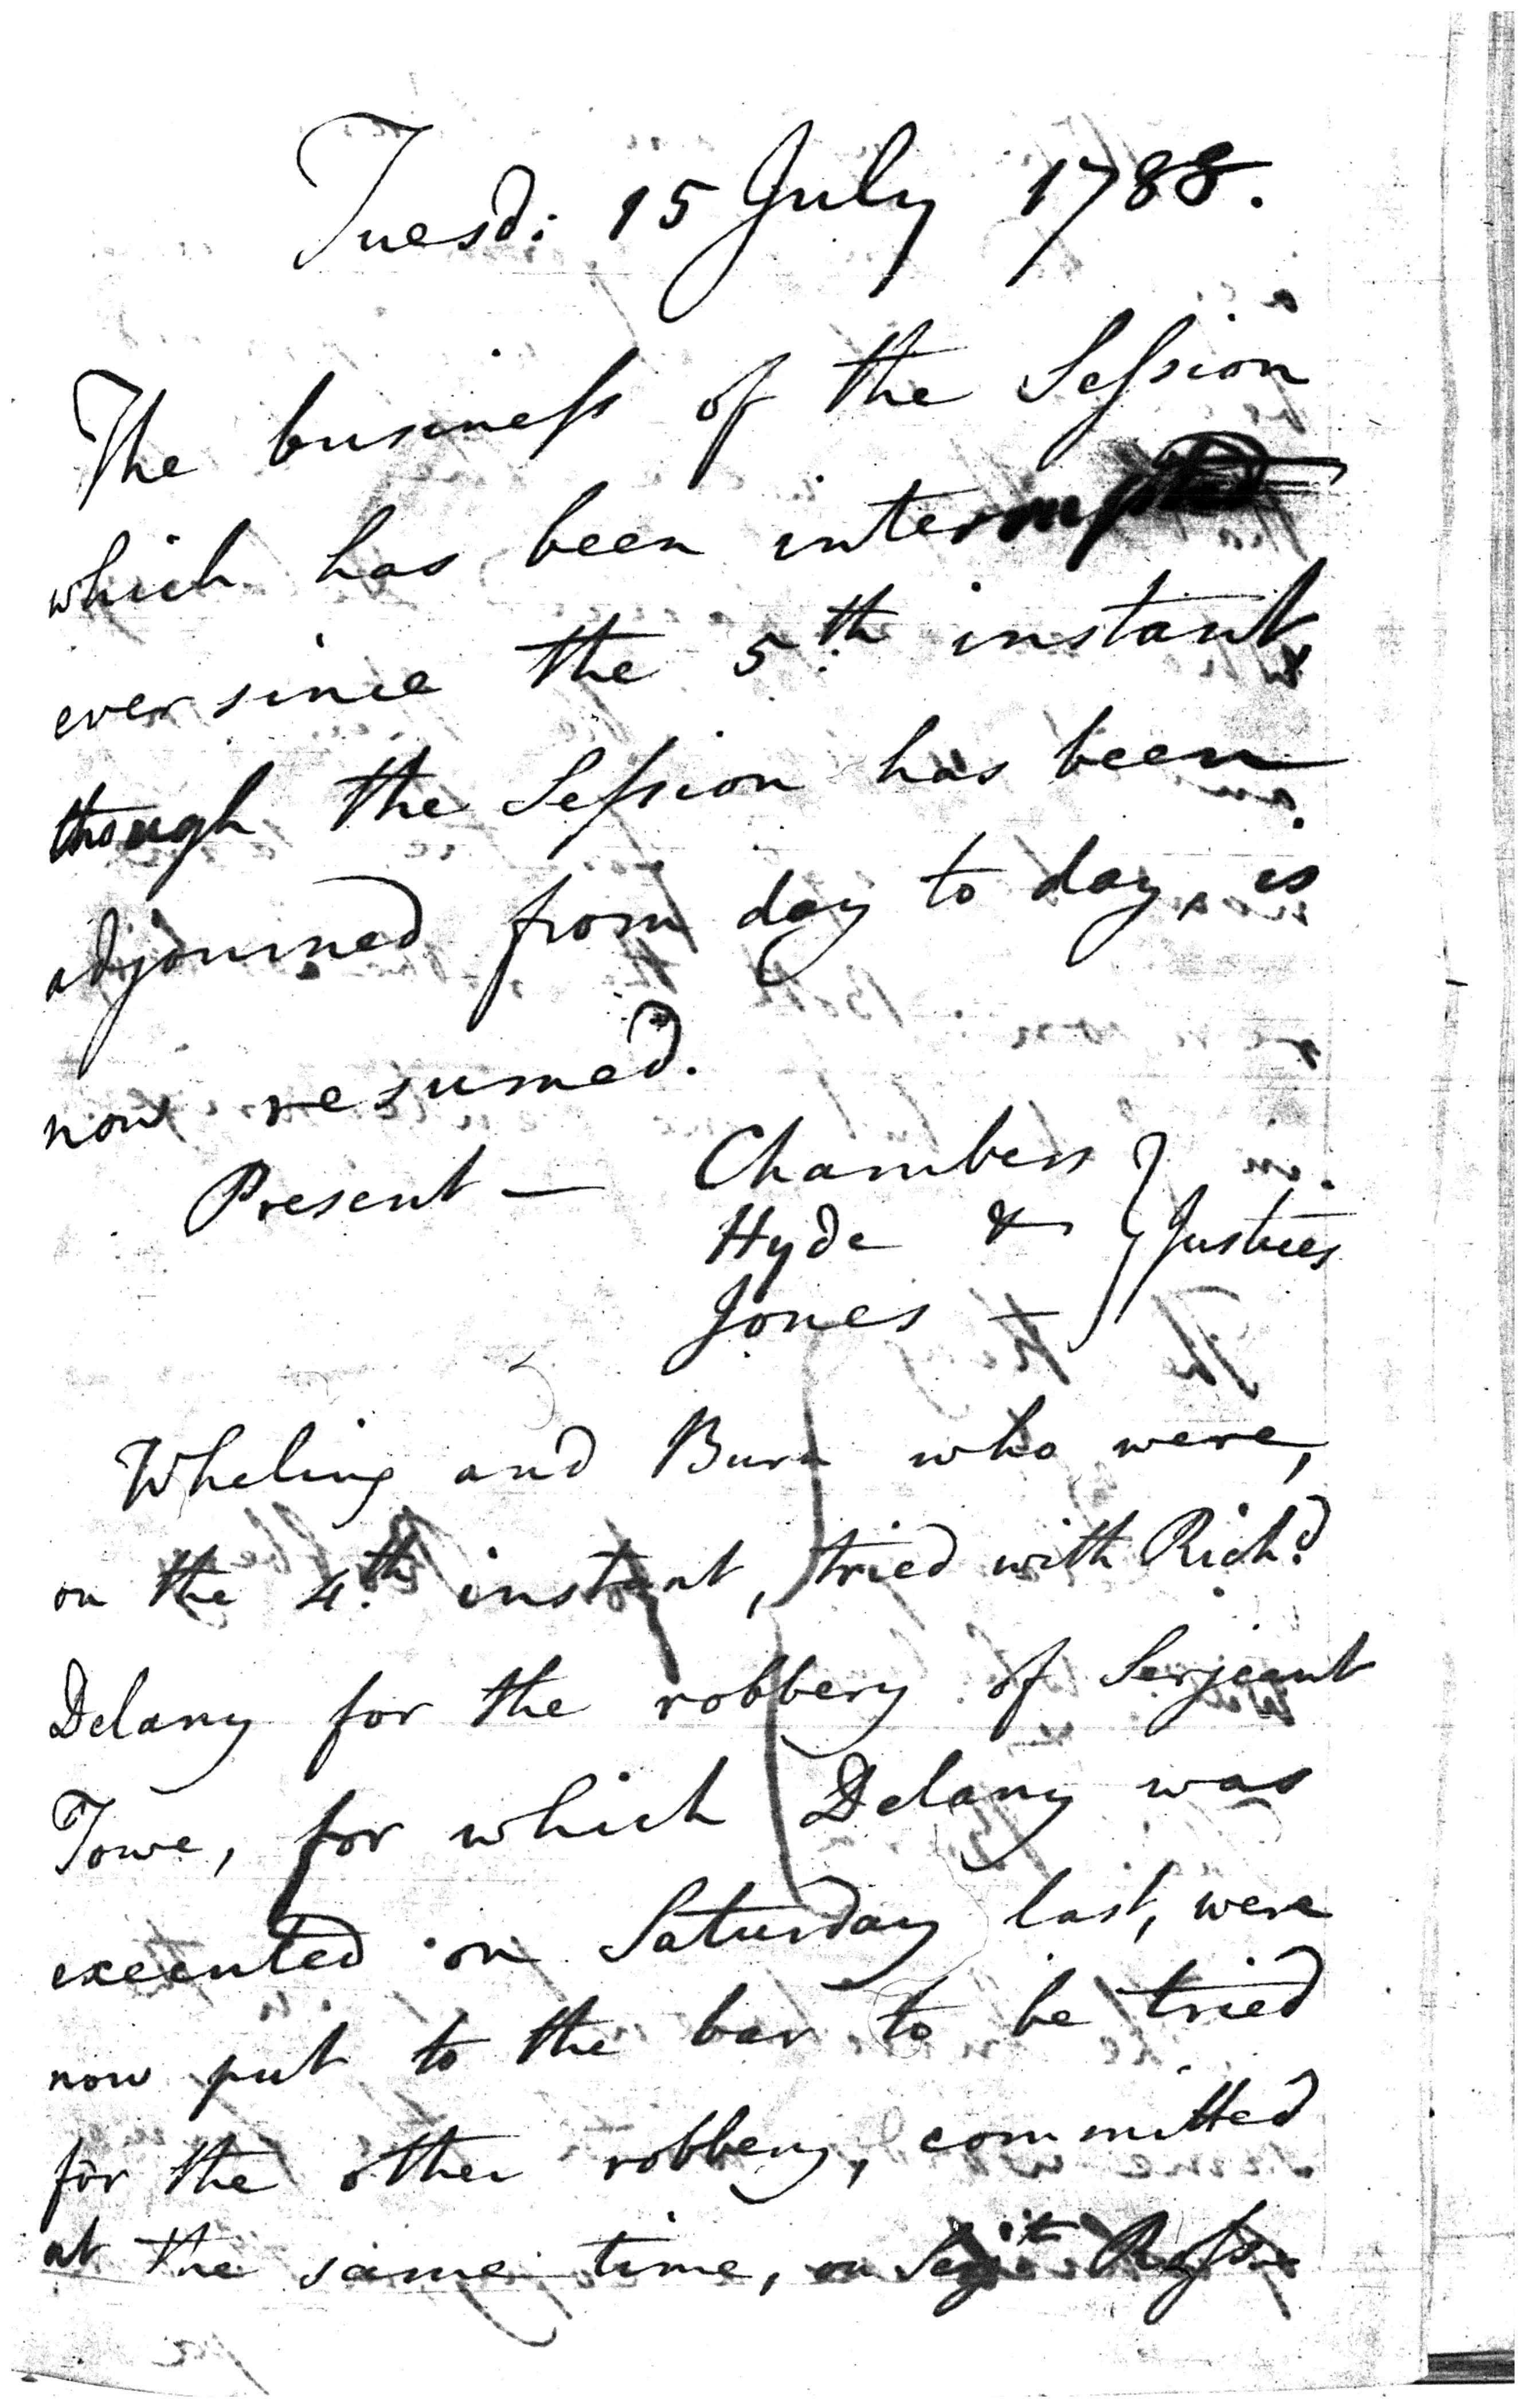 Tuesd: 15 July 1788.
The busineſs of the Seſsion
which has been interrupted
ever since the 5th instant,
though the Seſsion has been
adjourned from day to day, is
now resumed.
Present — Chambers
Hyde & } Justices
Jones —
Wheling and Burn who were,
on the 4th instant, tried with Richd
Delany for the robbery of Serjeant
Towe, for which Delany was
executed on Saturday last, were
now put to the bar to be tried
for the other robbery, committed
at the same time, on Serjt Roſs